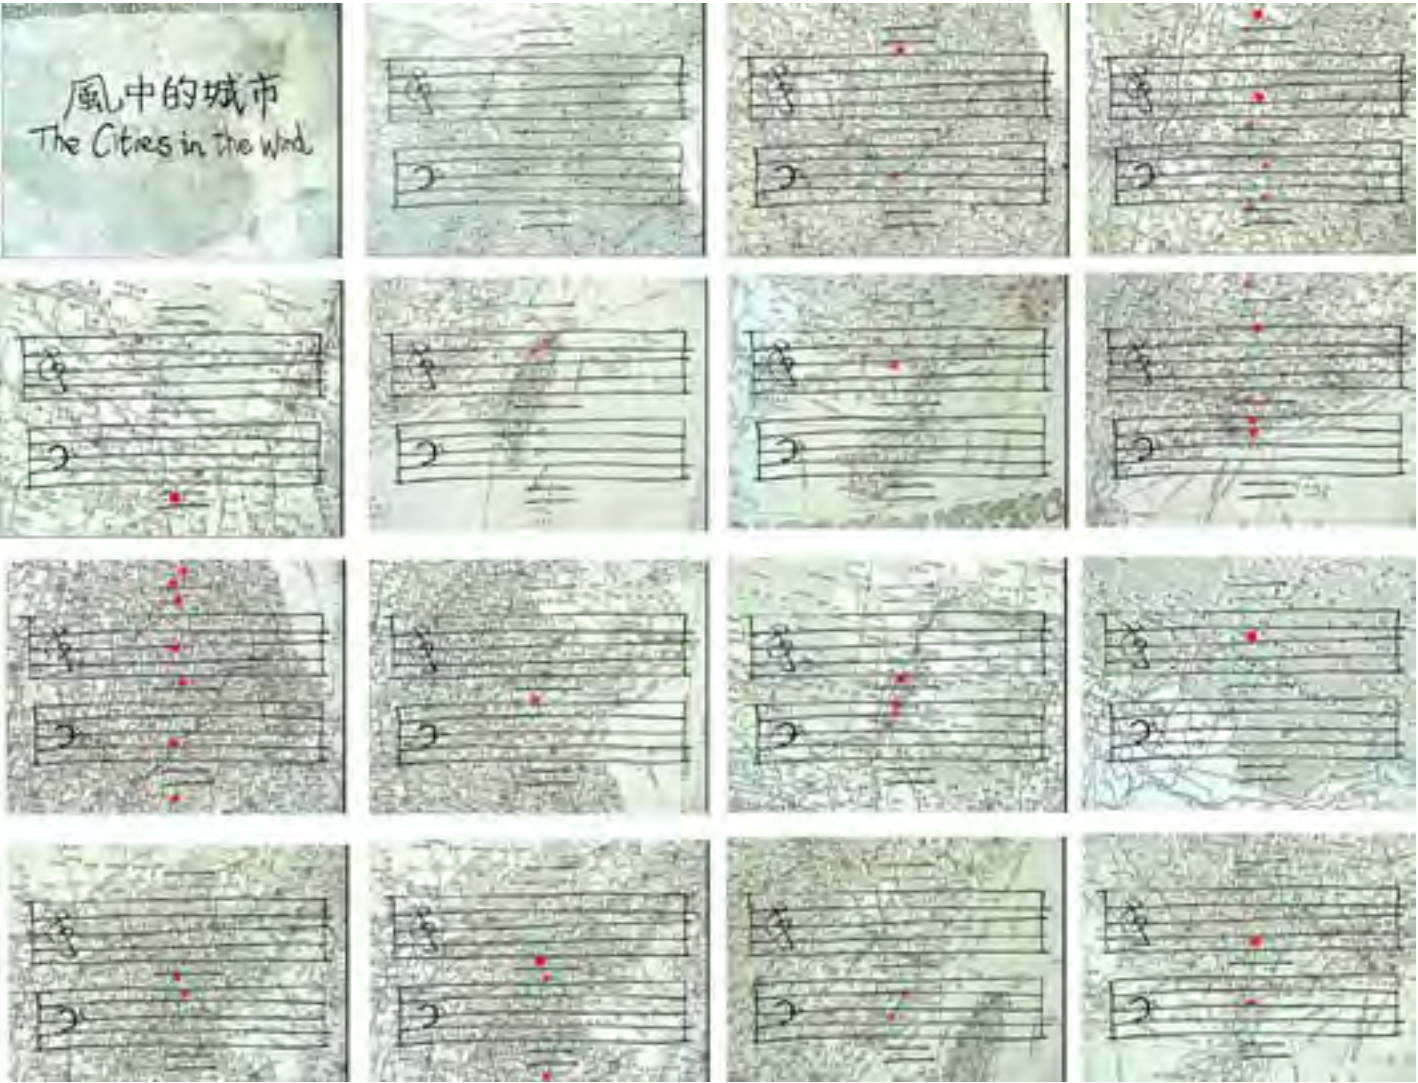 風中的城市
The Cities in the Wind